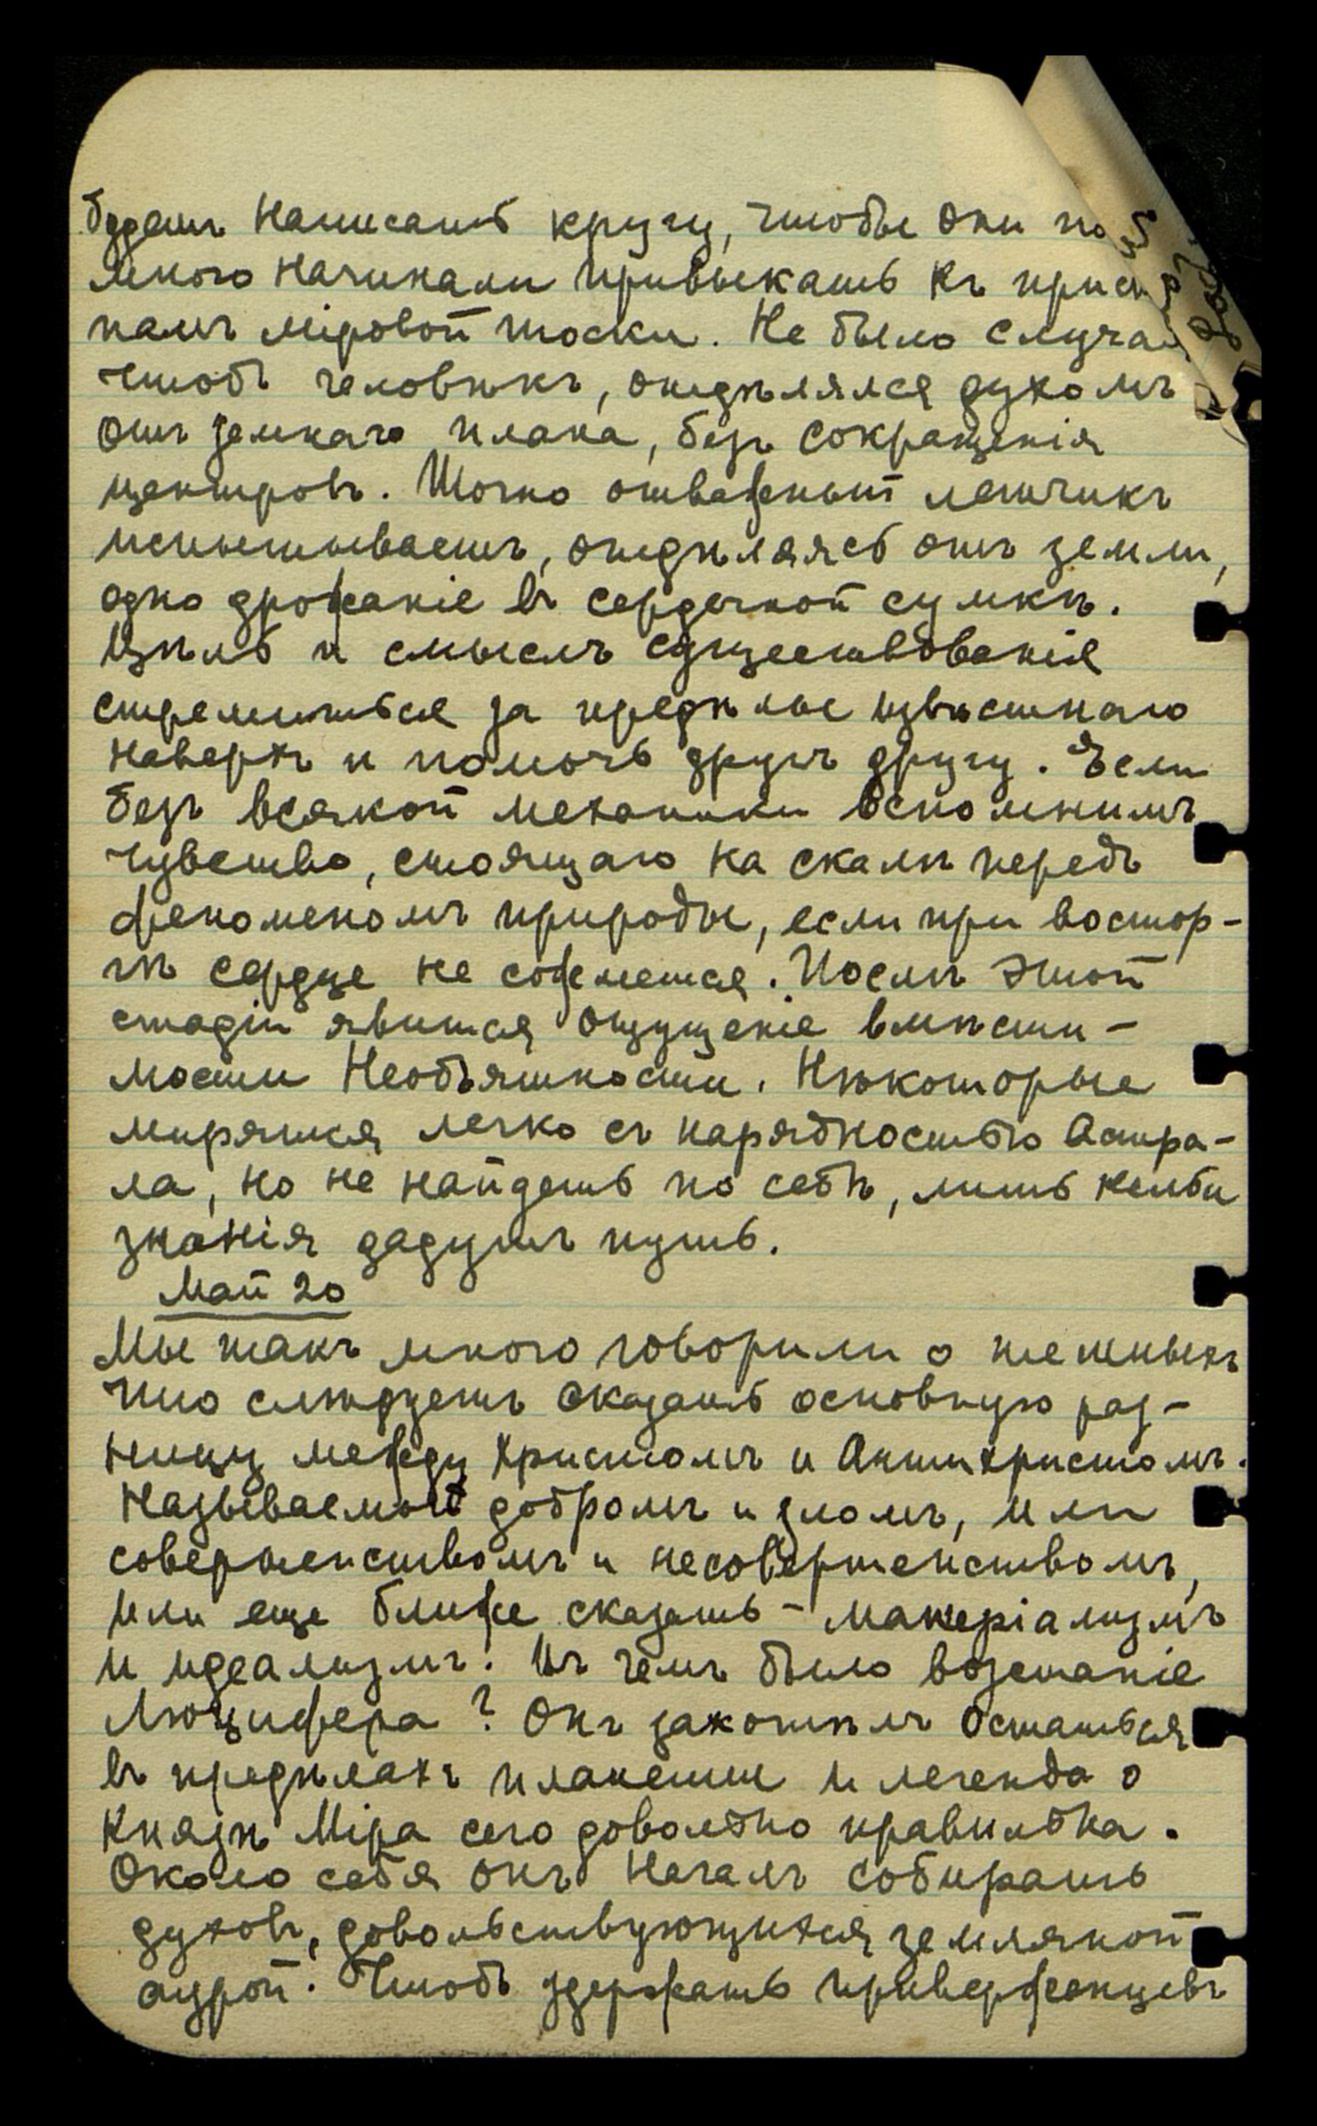 будетъ написать кругу, чтобы они по
много начинали привыкать къ прист
памъ міровой тоски. Не было случая
чтобъ человѣкъ, отдѣлялся духомъ
отъ земнаго плана, безъ сокращенія
центровъ. Точно отважный летчикъ
испытываетъ, отдѣляясь отъ земли,
одно дрожаніе въ сердечной сумкѣ.
Цѣль и смыслъ существованія
стремиться за предѣлы извѣстнаго
наверхъ и помочь другъ другу. Если
безъ всякой механики вспомнимъ
чувство, стоящаго на скалѣ передъ
феноменомъ природы, если при востор-
гѣ сердце не сожмется. Послѣ этой
стадіи явится ощущеніе вмѣсти-
мости Необъятности. Нѣкоторые
мирятся легко съ нарядностью Астра-
ла, но не найдешь по себѣ, лишь
знанія дадутъ путь.
Май 20
Мы такъ много говорили о темныхъ
что слѣдуетъ сказать основную раз-
ницу между Христомъ и Антихристомъ.
Называемый добромъ и зломъ, или
совершенствомъ и несовершенствомъ,
или еще ближе сказать - матеріализмъ
и идеализмъ. Въ чемъ было возстаніе
Люцифера? Онъ захотѣлъ остаться
въ предѣлахъ планеты и легенда о
Князѣ Міра сего довольно правильна.
Около себя онъ началъ собирать
духовъ, довольствующихся земляной
аурой. Чтобъ удержать приверженцевъ